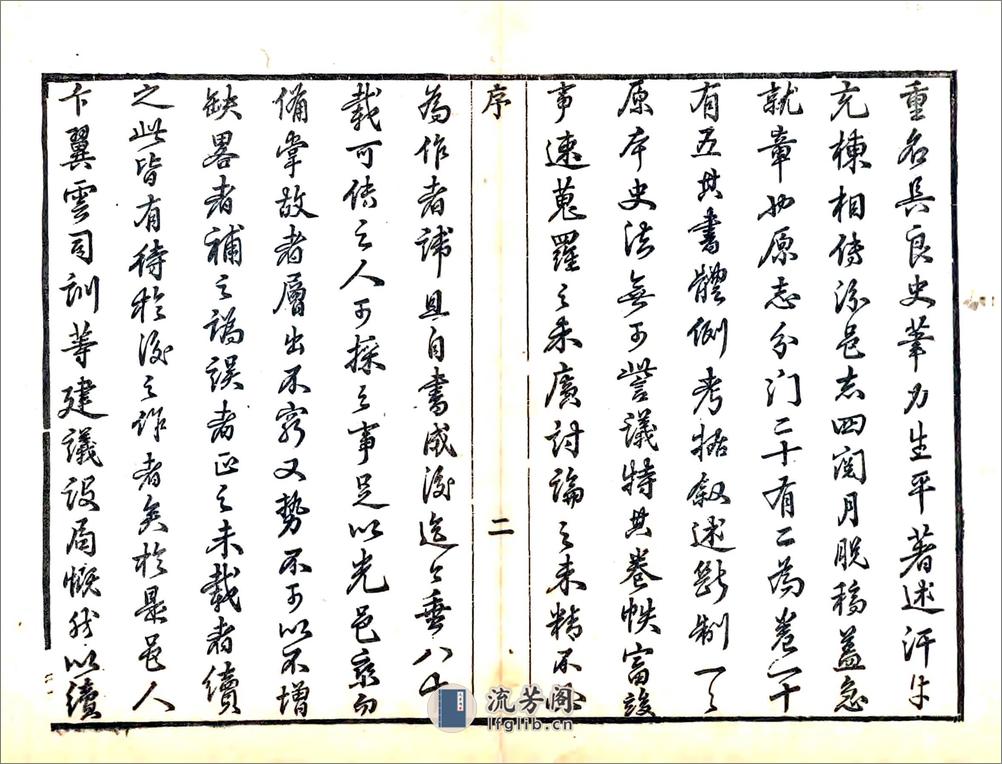 重名具良史筆乃生平著述汗牛
充棟相傳綜邑志四閱月脫稿蓋急
就章也原志分门二十有二為卷一十
有五其書體例考據叙述斷制一一
原本史法無可訾議特其卷帙富竣
事速蒐羅之未廣討論之未精不能
序
二
為作者諱且自書成後迄今垂八十
載可傳之人可採之事足以光邑乘而
備掌故者層出不窮又勢不可以不增
缺畧者補之譌誤者正之未載者續
之此皆有待於後之作者矣於是邑人
卞翼雲司訓等建議設局慨然以續
流芳阁
lfglib.cn